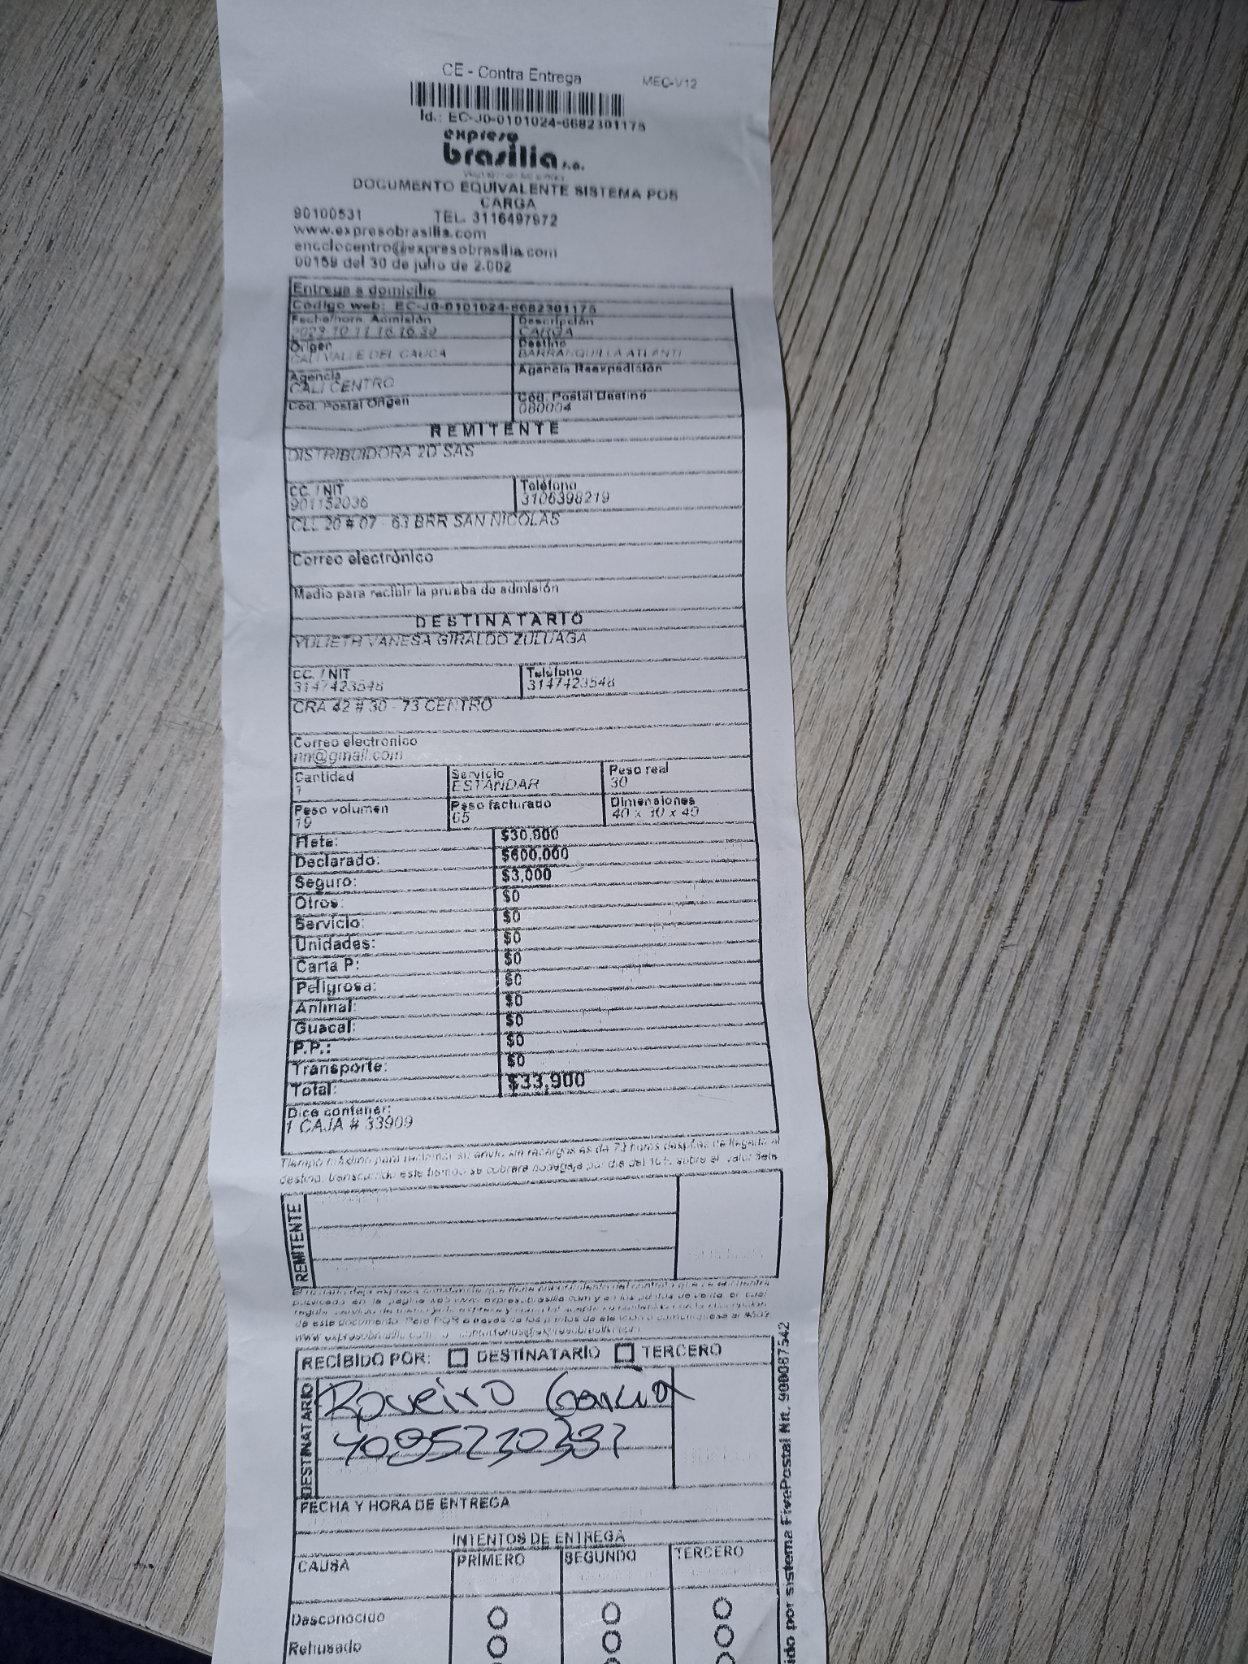 CE - Contra Entrega MEC-V12
Id.: EC-J0-0101024-6682301175
expreso
brasilia s.a.
DOCUMENTO EQUIVALENTE SISTEMA POS
CARGA
90100531 TEL. 3116497972
www.expresobrasilia.com
encclocentro@expresobrasilia.com
00159 del 30 de julio de 2.002
Entrega a domicilio
Código web: EC-J0-0101024-6682301175
Fecha/hora Admisión Descripción
2023-10-11 16:16:39 CARGA
Origen Destino
CALI VALLE DEL CAUCA BARRANQUILLA ATLANTI
Agencia Agencia Reexpedición
CALI CENTRO
Cod. Postal Origen Cód. Postal Destino
080004
REMITENTE
DISTRIBUIDORA 2D SAS
CC. / NIT Teléfono
901152036 3106398219
CLL 20 # 07 - 63 BRR SAN NICOLAS
Correo electrónico
Medio para recibir la prueba de admisión
DESTINATARIO
YULIETH VANESA GIRALDO ZULUAGA
CC. / NIT Teléfono
3147423548 3147423548
CRA 42 # 30 - 73 CENTRO
Correo electronico
nn@gmail.com
Cantidad Servicio Peso real
1 ESTANDAR 30
Peso volumen Peso facturado Dimensiones
19 65 40 x
Flete: $30,900
Declarado: $600,000
Seguro: $3,000
Otros: $0
Servicio: $0
Unidades: $0
Carta P: $0
Peligrosa: $0
Animal: $0
Guacal: $0
P.P.: $0
Transporte: $0
Total: $33,900
Dice contener:
1 CAJA # 33909
Tiempo máximo para reclamar su envío sin recargos es de 72 horas después de llegada al
destino, transcurrido este tiempo se cobrara bodegaje por día del 10% sobre el valor
REMITENTE
RECIBIDO POR: DESTINATARIO TERCERO
DESTINATARIO
García
FECHA Y HORA DE ENTREGA
INTENTOS DE ENTREGA
CAUSA PRIMERO SEGUNDO TERCERO
Desconocido
Rehusado
ido por sistema FivePostal Nit. 900087542